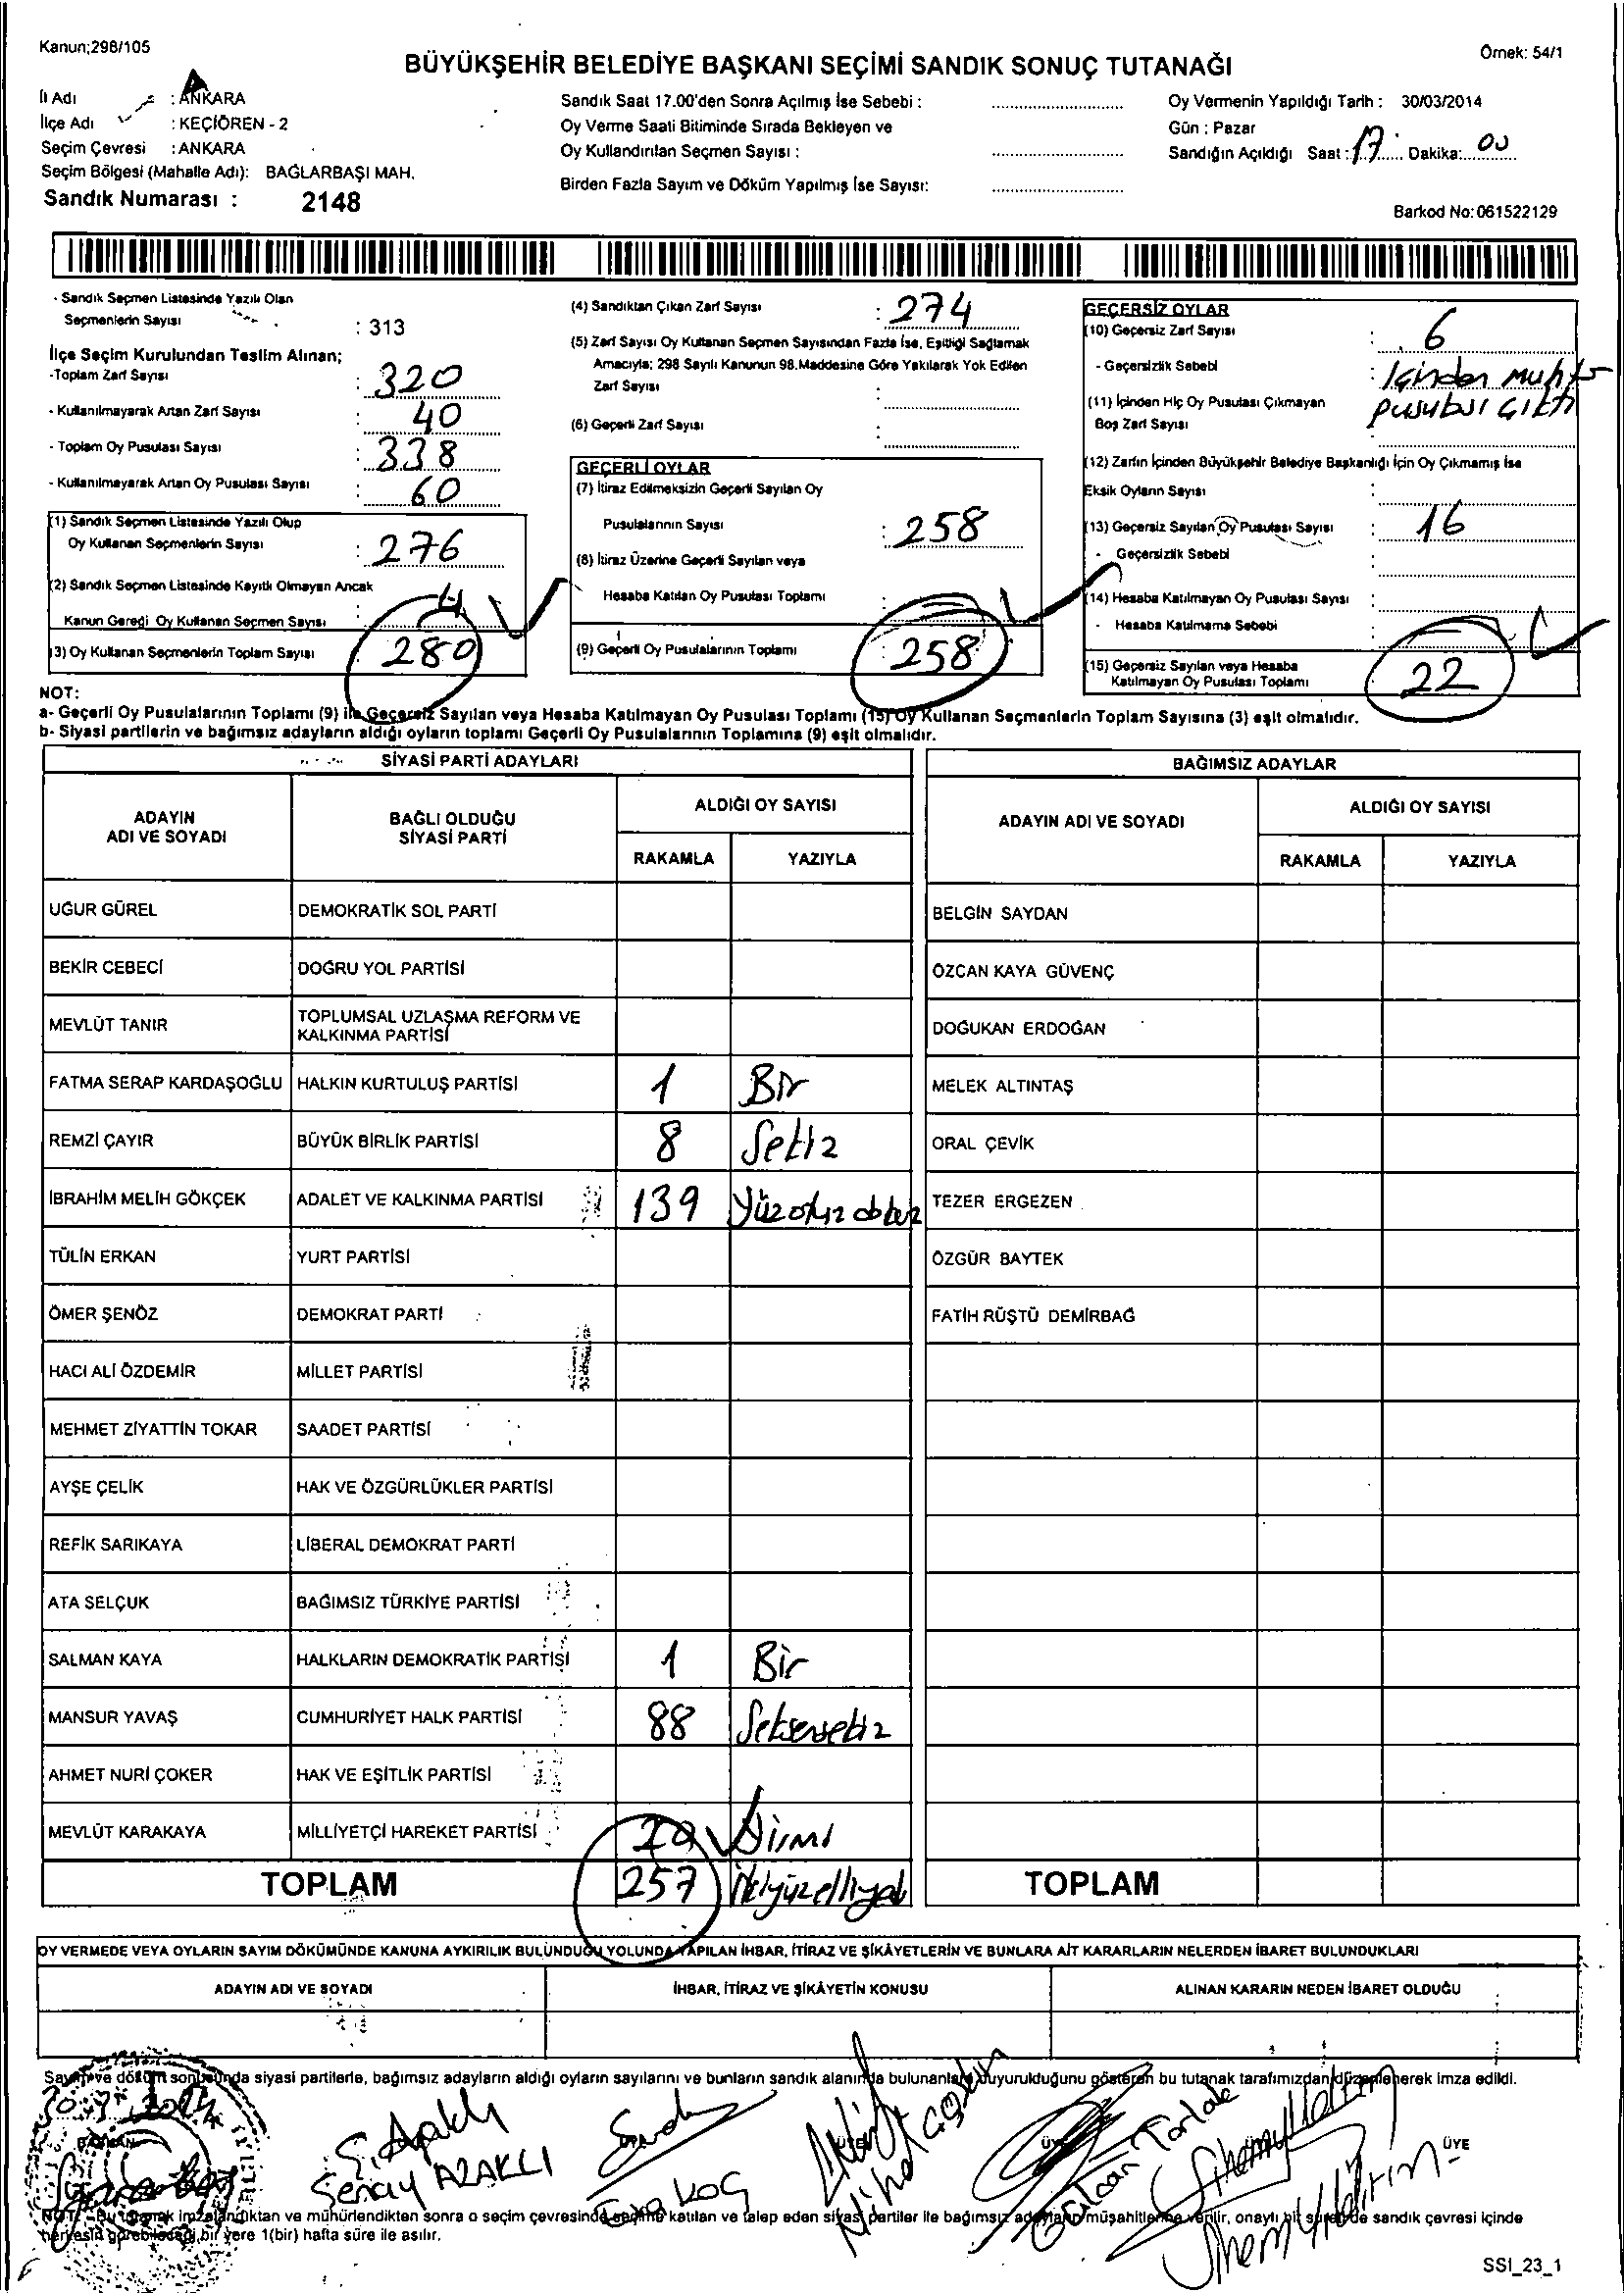 Kanun;298/105
Örnek: 54/1
BÜYÜKŞEHİR BELEDİYE BAŞKANI SEÇİMİ SANDIK SONUÇ TUTANAĞI
İl Adı : ANKARA
İlçe Adı : KEÇİÖREN - 2
Seçim Çevresi : ANKARA
Seçim Bölgesi (Mahalle Adı): BAĞLARBAŞI MAH.
Sandık Numarası : 2148
Sandık Saat 17.00'den Sonra Açılmış İse Sebebi :
Oy Verme Saati Bitiminde Sırada Bekleyen ve
Oy Kullandırılan Seçmen Sayısı :
Birden Fazla Sayım ve Döküm Yapılmış İse Sayısı:
Oy Vermenin Yapıldığı Tarih : 30/03/2014
Gün : Pazar
Sandığın Açıldığı Saat : 17 Dakika: 00
Barkod No: 061522129
- Sandık Seçmen Listesinde Yazılı Olan
Seçmenlerin Sayısı : 313
İlçe Seçim Kurulundan Teslim Alınan;
-Toplam Zarf Sayısı : 320
- Kullanılmayarak Artan Zarf Sayısı : 40
- Toplam Oy Pusulası Sayısı : 338
- Kullanılmayarak Artan Oy Pusulası Sayısı : 60
(1) Sandık Seçmen Listesinde Yazılı Olup
Oy Kullanan Seçmenlerin Sayısı : 276
(2) Sandık Seçmen Listesinde Kayıtlı Olmayan Ancak
Kanun Gereği Oy Kullanan Seçmen Sayısı 4
(3) Oy Kullanan Seçmenlerin Toplam Sayısı 280
(4) Sandıktan Çıkan Zarf Sayısı : 274
(5) Zarf Sayısı Oy Kullanan Seçmen Sayısından Fazla İse, Eşitliği Sağlamak
Amacıyla; 298 Sayılı Kanunun 98.Maddesine Göre Yakılarak Yok Edilen
Zarf Sayısı :
(6) Geçerli Zarf Sayısı :
GEÇERLİ OYLAR
(7) İtiraz Edilmeksizin Geçerli Sayılan Oy
Pusulalarının Sayısı : 258
(8) İtiraz Üzerine Geçerli Sayılan veya
Hesaba Katılan Oy Pusulası Toplamı :
(9) Geçerli Oy Pusulalarının Toplamı : 258
GEÇERSİZ OYLAR
(10) Geçersiz Zarf Sayısı : 6
- Geçersizlik Sebebi : İçinden Muhtar
pusulası çıktı
(11) İçinden Hiç Oy Pusulası Çıkmayan
Boş Zarf Sayısı
(12) Zarfın İçinden Büyükşehir Belediye Başkanlığı İçin Oy Çıkmamış İse
Eksik Oyların Sayısı :
(13) Geçersiz Sayılan Oy Pusulası Sayısı : 16
- Geçersizlik Sebebi
(14) Hesaba Katılmayan Oy Pusulası Sayısı :
- Hesaba Katılmama Sebebi
(15) Geçersiz Sayılan veya Hesaba
Katılmayan Oy Pusulası Toplamı 22
NOT:
a- Geçerli Oy Pusulalarının Toplamı (9) ile Geçersiz Sayılan veya Hesaba Katılmayan Oy Pusulası Toplamı (15) Oy Kullanan Seçmenlerin Toplam Sayısına (3) eşit olmalıdır.
b- Siyasi partilerin ve bağımsız adayların aldığı oyların toplamı Geçerli Oy Pusulalarının Toplamına (9) eşit olmalıdır.
SİYASİ PARTİ ADAYLARI
ADAYIN ADI VE SOYADI
BAĞLI OLDUĞU SİYASİ PARTİ
ALDIĞI OY SAYISI
RAKAMLA YAZIYLA
UĞUR GÜREL DEMOKRATİK SOL PARTİ
BEKİR CEBECİ DOĞRU YOL PARTİSİ
MEVLÜT TANIR TOPLUMSAL UZLAŞMA REFORM VE
KALKINMA PARTİSİ
FATMA SERAP KARDAŞOĞLU HALKIN KURTULUŞ PARTİSİ 1 Bir
REMZİ ÇAYIR BÜYÜK BİRLİK PARTİSİ 8 Sekiz
İBRAHİM MELİH GÖKÇEK ADALET VE KALKINMA PARTİSİ 139 Yüzotuz dokuz
TÜLİN ERKAN YURT PARTİSİ
ÖMER ŞENÖZ DEMOKRAT PARTİ
HACI ALİ ÖZDEMİR MİLLET PARTİSİ
MEHMET ZİYATTİN TOKAR SAADET PARTİSİ
AYŞE ÇELİK HAK VE ÖZGÜRLÜKLER PARTİSİ
REFİK SARIKAYA LİBERAL DEMOKRAT PARTİ
ATA SELÇUK BAĞIMSIZ TÜRKİYE PARTİSİ
SALMAN KAYA HALKLARIN DEMOKRATİK PARTİSİ 1 Bir
MANSUR YAVAŞ CUMHURİYET HALK PARTİSİ 88 Seksensekiz
AHMET NURİ ÇOKER HAK VE EŞİTLİK PARTİSİ
MEVLÜT KARAKAYA MİLLİYETÇİ HAREKET PARTİSİ 20 Yirmi
TOPLAM 257 İkiyüzelliyedi
BAĞIMSIZ ADAYLAR
ADAYIN ADI VE SOYADI
ALDIĞI OY SAYISI
RAKAMLA YAZIYLA
BELGİN SAYDAN
ÖZCAN KAYA GÜVENÇ
DOĞUKAN ERDOĞAN
MELEK ALTINTAŞ
ORAL ÇEVİK
TEZER ERGEZEN
ÖZGÜR BAYTEK
FATİH RÜŞTÜ DEMİRBAĞ
TOPLAM
OY VERMEDE VEYA OYLARIN SAYIM DÖKÜMÜNDE KANUNA AYKIRILIK BULUNDUĞU YOLUNDA YAPILAN İHBAR, İTİRAZ VE ŞİKÂYETLERİN VE BUNLARA AİT KARARLARIN NELERDEN İBARET BULUNDUKLARI
ADAYIN ADI VE SOYADI İHBAR, İTİRAZ VE ŞİKÂYETİN KONUSU ALINAN KARARIN NEDEN İBARET OLDUĞU
Sayım ve döküm sonucunda siyasi partilerle, bağımsız adayların aldığı oyların sayılarını ve bunların sandık alanında bulunanlara duyurulduğunu gösteren bu tutanak tarafımızdan düzenlenerek imza edildi.
BAŞKAN ÜYE ÜYE ÜYE ÜYE
Ş. Azaklı
Şenay AZAKLI
Koç
NOT: Bu tutanak imzalandıktan ve mühürlendikten sonra o seçim çevresinde seçime katılan ve talep eden siyasi partiler ile bağımsız adayların müşahitlerine verilir, onaylı bir suretide sandık çevresi içinde
herkesin görebileceği bir yere 1(bir) hafta süre ile asılır.
SSI_23_1